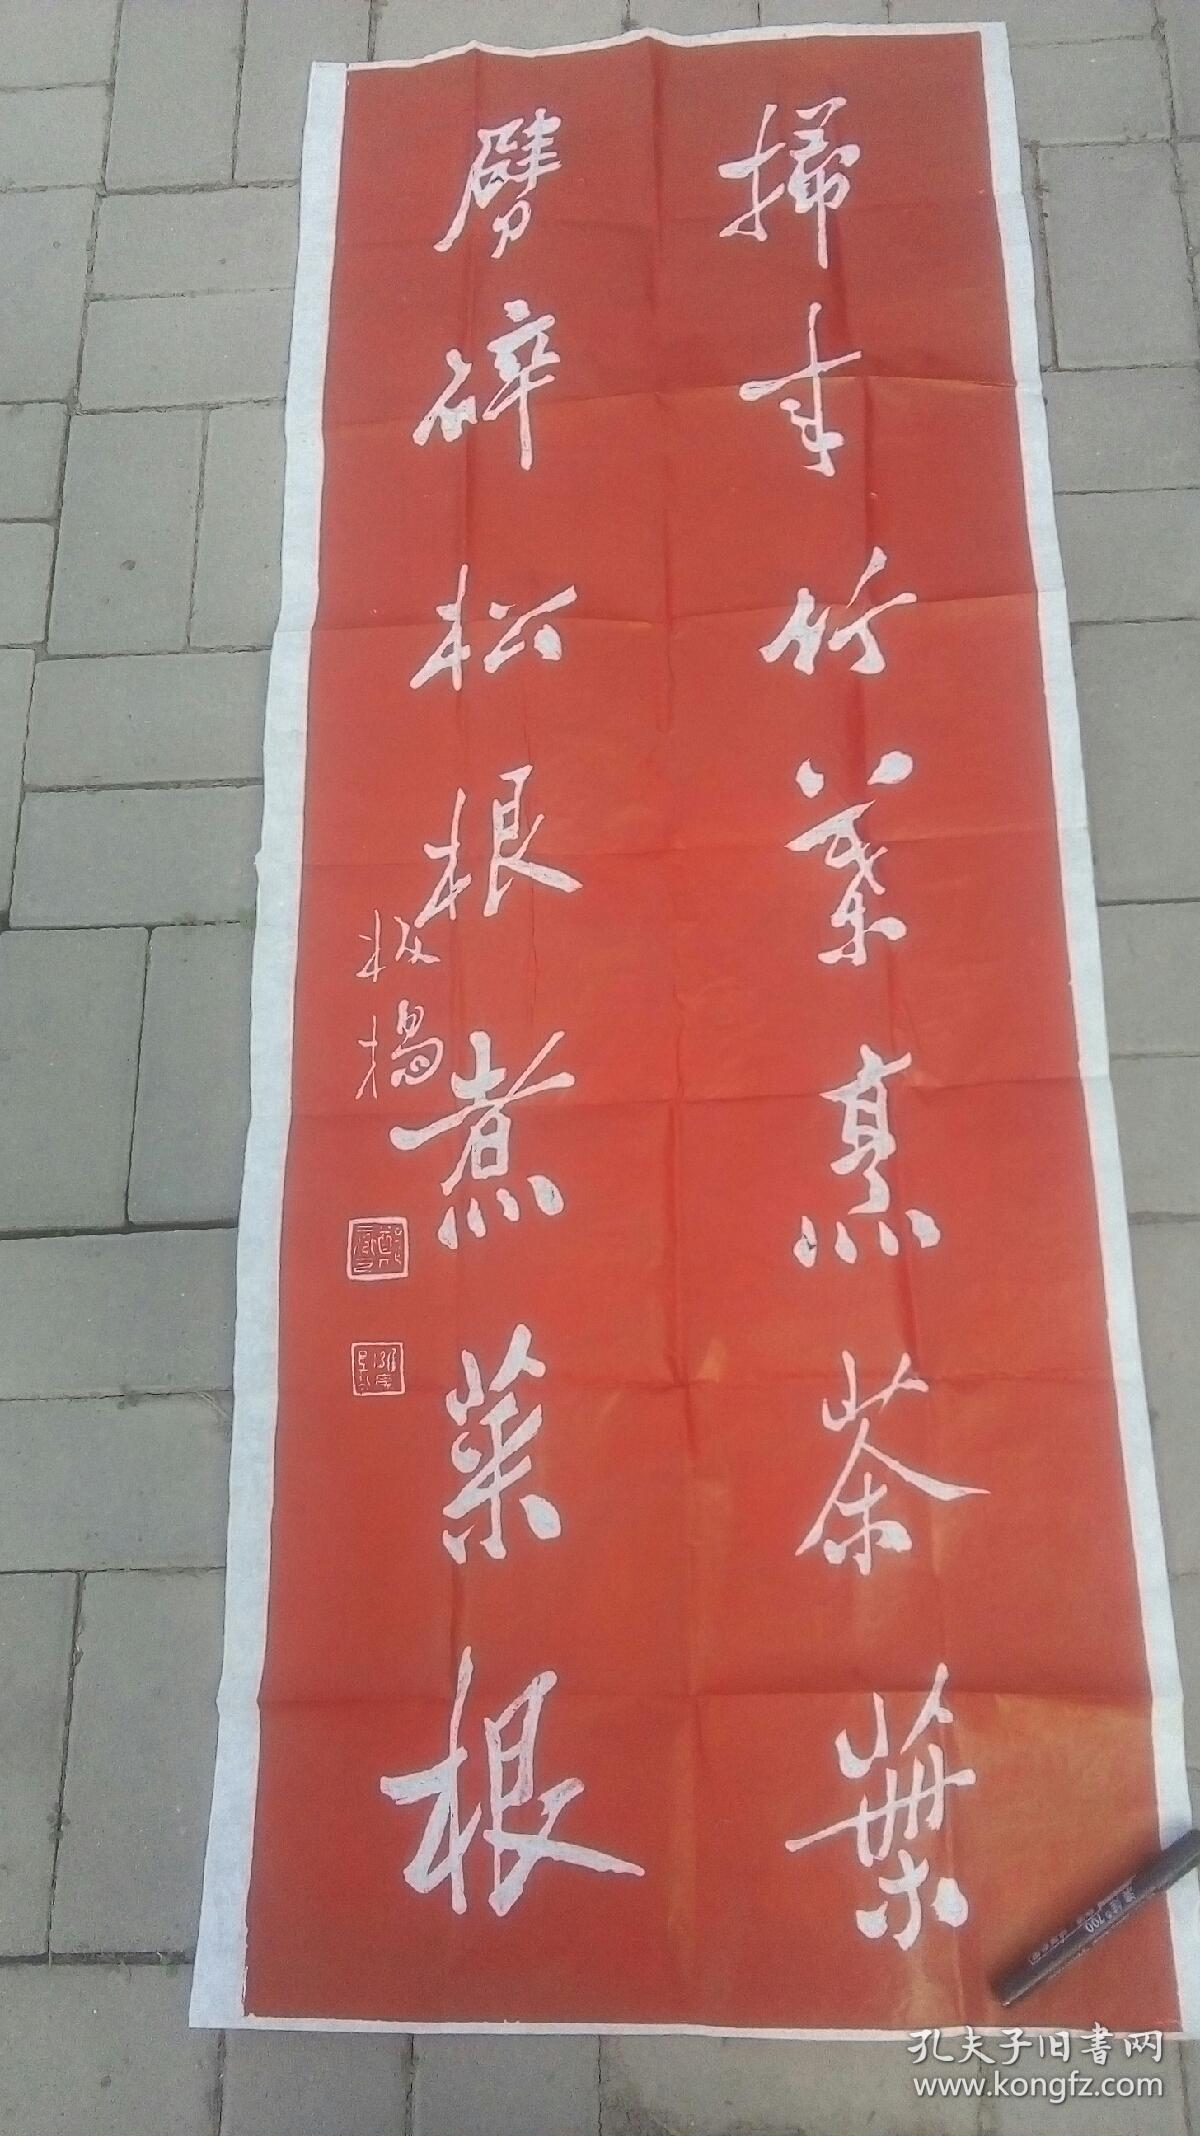 掃来竹葉烹茶葉
劈碎松根煮菜根
板橋
孔夫子旧书网
www.kongfz.com